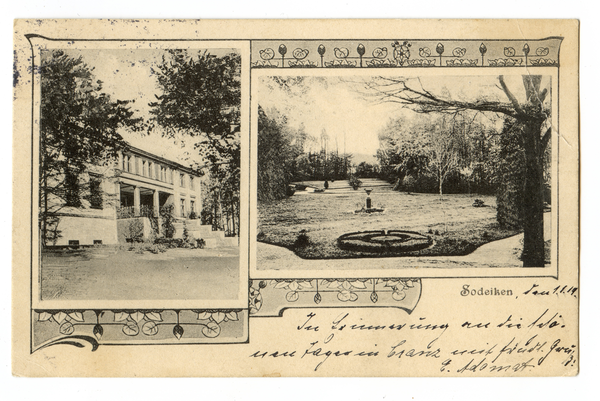 Sodeiken, den 1.1.19.
In Erinnerung an die schö-
nen Tage in Cranz mit frdl. Gruß
E. Adomat